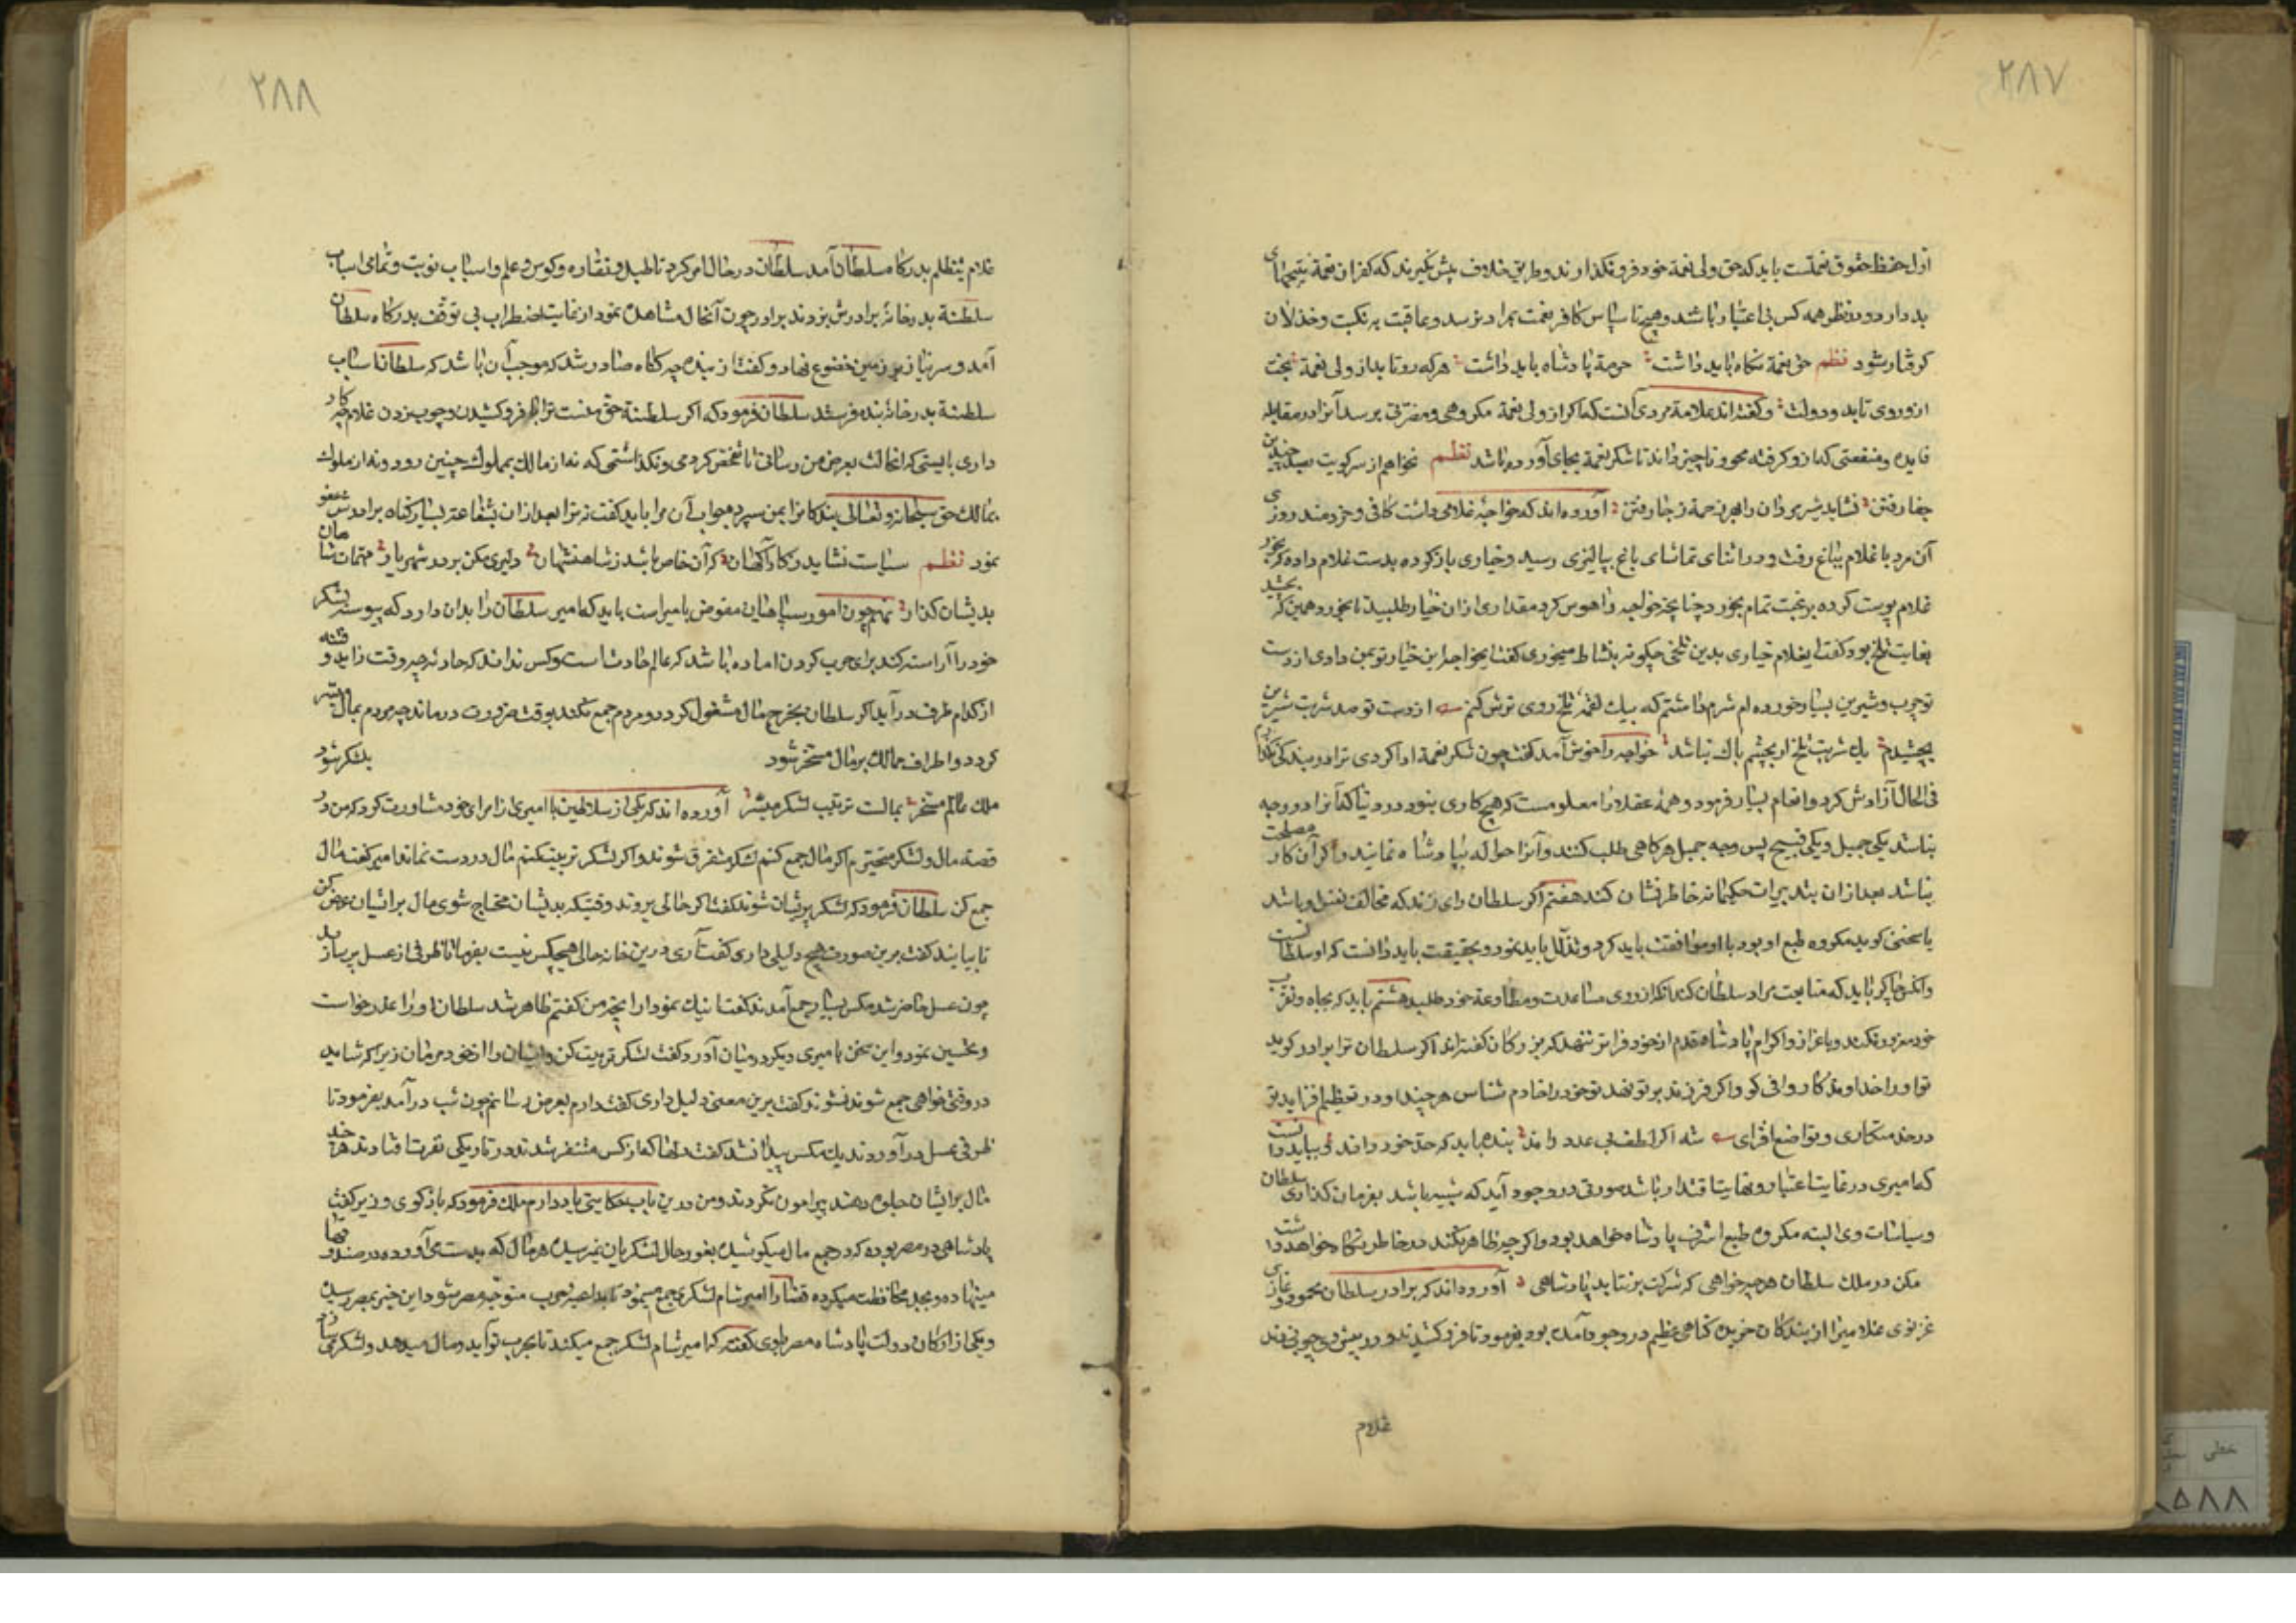 ۲۸۷
اول حفظ حقوق نعمتست باید که حق ولی نعمة خود فرو نگذارند و طریق خلاف پیش نگیرند که کفران نعمة نتیجهای
بد دارد و در نظر همه کس بی اعتبار باشد و هیچ ناسپاس کافر نعمت بمراد نرسد و عاقبت به نکبت و خذلان
کرفتار شود نظم حق نعمة نگاه باید داشت حرمة پادشاه باید داشت هرکه رو تابد از ولی نعمة بخت
ازو روی تابد و دولت و گفته اند علامة مردی آنست که اگر از ولی نعمة مکروهی و مضرتی برسد آنرا در مقابله
فایده و منفعتی که ازو گرفته محو و ناچیز داند تا شکر نعمة بجای آورده باشد نظم نخواهم از سر کویت بصد چندین
جفا رفتن نشاید شیرمردان را بهر زحمة ز جا رفتن آورده اند که خواجۀ غلامی داشت کافی و خردمند روزی
آن مرد با غلام بباغ رفت و در اثنای تماشای باغ بپالیزی رسید و خیاری باز کرده بدست غلام داد که بخور
غلام پوست کرده برغبت تمام بخورد چنانچه خواجه را هوس کرد مقداری ازان خیار طلبید تا بخورد همین که بچشید
بغایت تلخ بود گفت ایغلام خیاری بدین تلخی چگونه بنشاط میخوری گفت ایخواجه این خیار تو بمن دادی از دست
تو چرب و شیرین بسیار خورده ام شرم داشتم که بیک لقمۀ تلخ روی ترش کنم از دست تو صد شربت شیرین
بچشیدم یک شربت تلخ ار بچشم باک نباشد خواجه را خوش آمد گفت چون شکر نعمة ادا کردی ترا در بندگی نگذارم
فی الحال آزادش کرد و انعام بسیار فرمود و همۀ عقلا را معلومست که هیچ کاری نبود در دنیا که آنرا دو وجه
نباشد یکی جمیل و یکی قبیح پس وجه جمیل هر کاهی طلب کنند و آنرا حواله بپادشاه نمایند و اگر آن کار مصلحت
نباشد بعد ازان بتدبیرات حکیمانه خاطر نشان کند هفتم اگر سلطان رای زند که مخالف نفس او باشد
یا سخنی گوید مکروه طبع او بود با او موافقت باید کرد و تذلل باید نمود و بحقیقت باید دانست که او سلطانست
و آنکس چاکر باید که متابعت مراد سلطان کند نه آنکه از وی مساعدت و مطاوعة خود طلبد هشتم باید که بجاه و تقرب
خود مغرور نگردد و باعزاز و اکرام پادشاه قدم از حد خود فراتر ننهد که بزرگان گفته اند اگر سلطان ترا برادر گوید
تو او را خداوندگار وافی گو و اگر فرزند بر تو نهد تو خود را خادم شناس هرچند او در تعظیم فزاید تو
در خدمتکاری و تواضع افزای شه اگر لطف بی عدد راند بنده باید که حد خود داند و بباید دانست
که امیری در غایت اعتبار و نهایت اقتدار باشد صورتی در وجود آید که شبیه باشد بفرمان گذاری سلطان
و سیاسات وی البته مکروه طبع اشرف پادشاه خواهد بود و اگر چه ظاهر نکند در خاطر نگاه خواهد داشت
مکن در ملک سلطان هرچه خواهی که شرکت بر نتابد پادشاهی آورده اند که برادر سلطان محمود غازی
غزنوی غلامیرا از بندگان خویش گناهی عظیم در وجود آمده بود بفرمود تا فرو کشیدند و در پیش وی چوبی زدند
غلام
۲۸۸
غلام بتظلم بدرگاه سلطان آمد سلطان در حال امر کرد تا طبل و نقاره و کوس و علم و اسباب نوبت و تمامی اسباب
سلطنة بدر خانۀ برادرش بردند برادر چون آنحال مشاهده نمود از غایت اضطراب بی توقف بدرگاه سلطان
آمد و سر نیاز بر زمین خضوع نهاد و گفت از بنده چه گناه صادر شد که موجب آن باشد که سلطان اسباب
سلطنة بدر خانۀ بنده فرستد سلطان فرمود که اگر سلطنة حق منست ترا بفرو کشیدن و چوب زدن غلام چه کار
داری بایستی که انحالت بعرض من رسانی تا تفحص کردمی و نگذاشتمی که نه از مالک بمملوک چنین رود و نه از مملوک
بمالک حق سبحانه و تعالی بندگانرا بمن سپرده جواب آن مرا باید گفت نه ترا بعد ازان بشفاعت بسیار گناه برادرش عفو
نمود نظم سیاست نشاید ز کارآگهان که آن خاص باشد ز شاهنشهان دلیری مکن بر در شهریار مهمات شاهان
بدیشان گذار نهم چون امور سپاهیان مفوض بامیراست باید که امیر سلطان را بدان دارد که پیوسته لشکر
خود را آراسته کند برای حرب کردن اماده باشد که عالم حادثاست و کس نداند که حادثه چه وقت زاید و فتنه
از کدام طرف در آید اگر سلطان بخرج مال مشغول گردد و مردم جمع نکند بوقت ضرورت درماند چه مردم بمال میسر
گردد و اطراف ممالک بر مال مسخر شود بلشکر شود
ملک عالم مسخر بمالت ترتیب لشکر میسر آورده اند که یکی از سلاطین با امیری از امرای خود مشاورت کرد که من در
قصه مال و لشکر متحیرم اگر مال جمع کنم لشکر متفرق شوند و اگر لشکر تربیت کنم مال در دست نماند امیر گفت مال
جمع کن سلطان فرمود که لشکر پریشان شوند گفت اگر حالی بروند وقتیکه بدیشان محتاج شوی مال برایشان عرض کن
تا بیایند گفت برین صورت هیچ دلیلی داری گفت آری درین خانه حالی هیچ مگس نیست بفرما تا ظرفی از عسل پر سازند
چون عسل حاضر شد مگس بسیار جمع آمدند گفت اینک نمودار آنچه من گفتم ظاهر شد سلطان او را عذر خواست
و تحسین نمود و این سخن با میری دیگر در میان آورد گفت لشکر تربیت کن و ایشان را از خود مرمان زیرا که شاید
در وقتی خواهی جمع شوند نشوند گفت برین معنی دلیل داری گفت دارم بعرض رسانم چون شب در آمد بفرمود تا
ظرفی عسل در آوردند یک مگس پیدا نشد گفت دلها که از کس متنفر شدند در تاریکی نفرت افتادند هرچند
مال برایشان جلوه دهند پیرامون نگردند و من درین باب حکایتی یاد دارم ملک فرمود که باز گوی وزیر گفت
پادشاهی در مصر بوده که در جمع مال میکوشیده بغور حال لشکریان نمیرسیده هر مال که بدست می آورده در صندوقها
مینهاده و بجد محافظت میکرده قضا را امیر شام لشکری جمع مینمود تا بداعیه حرب متوجه مصر شود این خبر بمصر رسیده
و یکی از ارکان دولت پادشاه مصر باوی گفته که امیر شام لشکر جمع میکند تا بحرب تو آید و مال میدهد و لشکر می سازد
خطی
۸۵۸۸